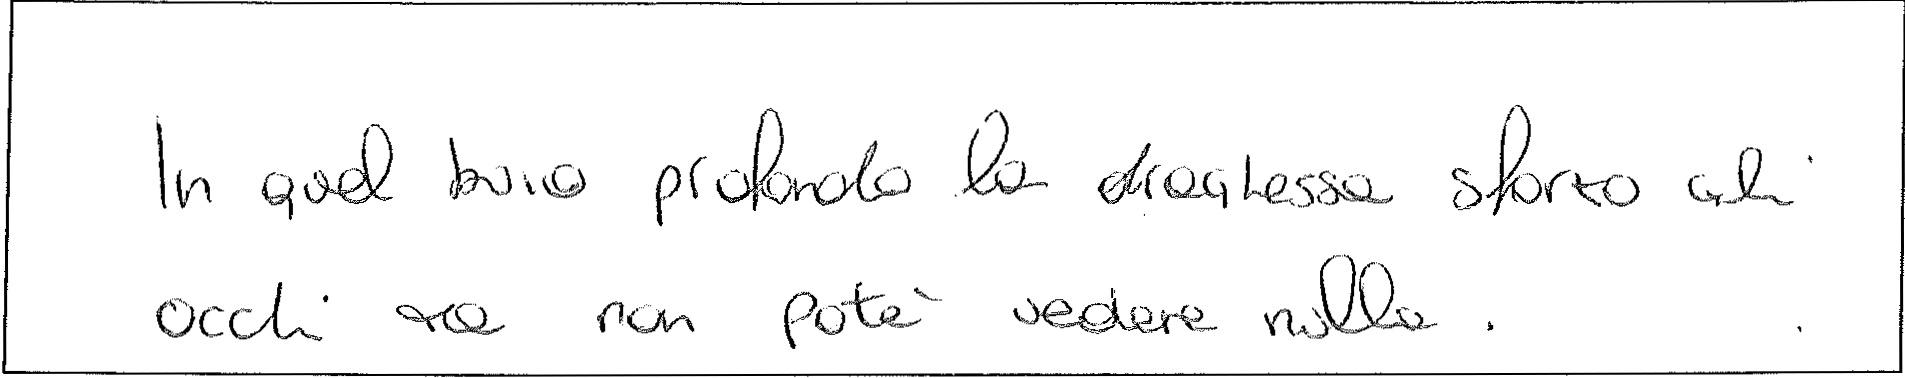 In quel buio profondo la draghessa sforzo gli
occhi ma non potè vedere nulla.